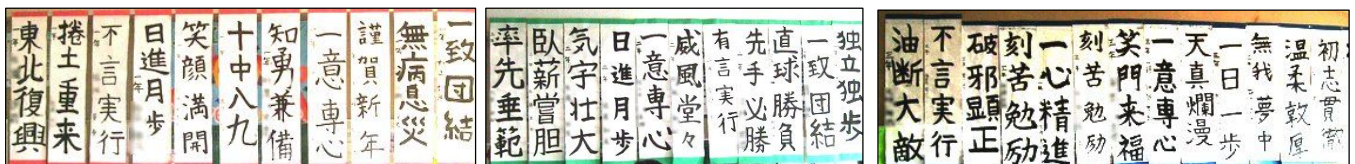 一致団結
無病息災
謹賀新年
一意専心
知勇兼備
十中八九
笑顔満開
日進月歩
不言実行
捲土重来
東北復興
独立独歩
一致団結
直球勝負
先手必勝
有言実行
威風堂々
一意専心
日進月歩
気宇壮大
臥薪嘗胆
率先垂範
初志貫徹
温柔敦厚
無我夢中
一日一歩
天真爛漫
一意専心
笑門来福
刻苦勉励
一心精進
刻苦勉励
破邪顕正
不言実行
油断大敵